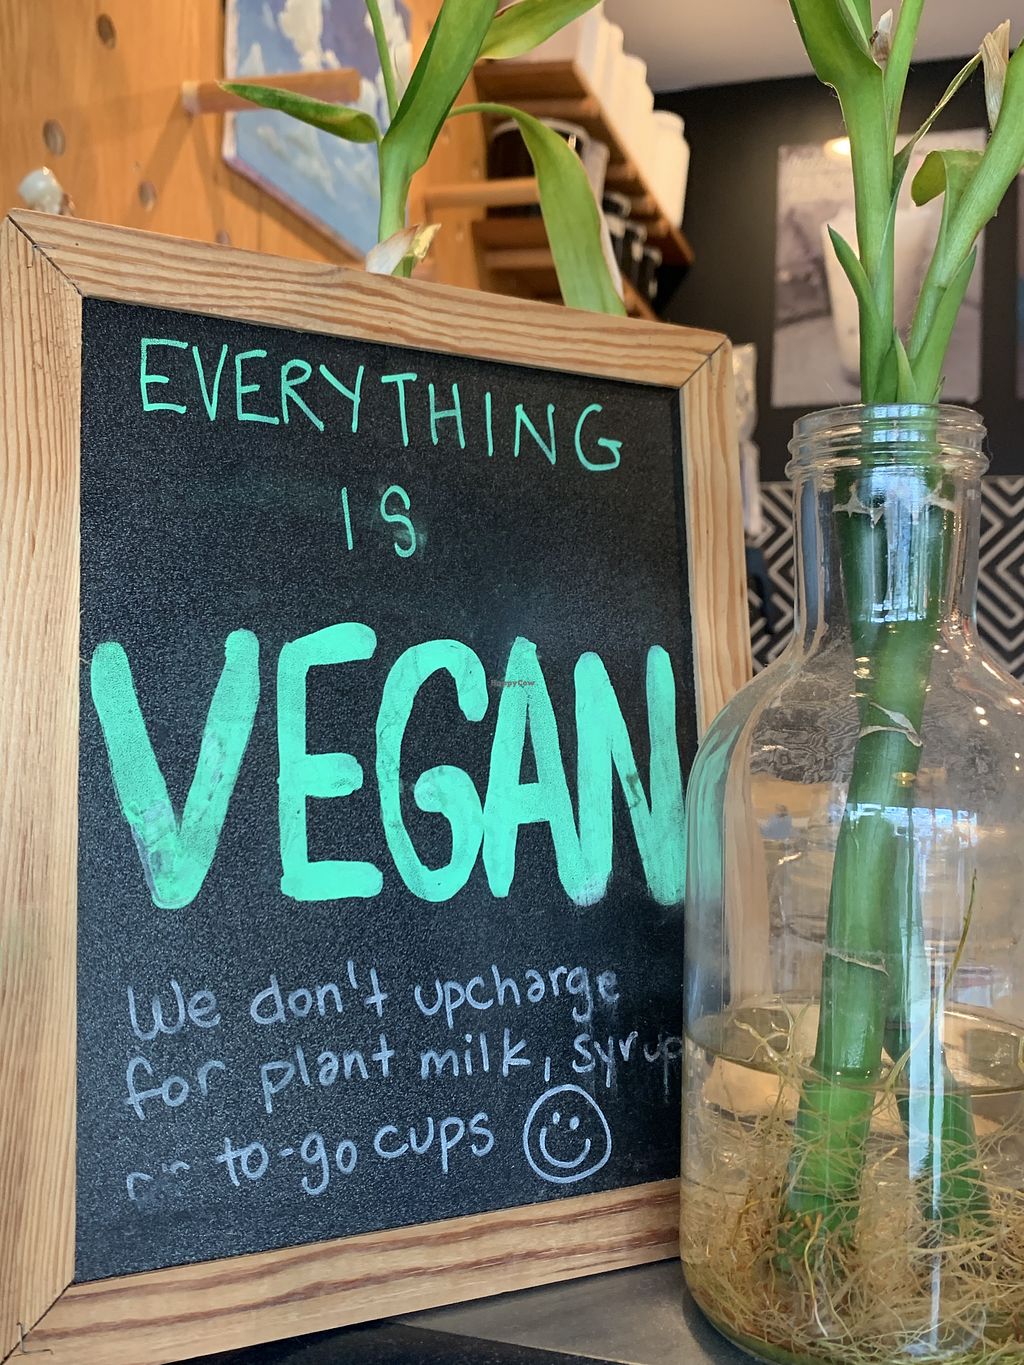 EVERYTHING
IS
VEGAN
HappyCow
We don't upcharge
for plant milk, syrup
to-go cups